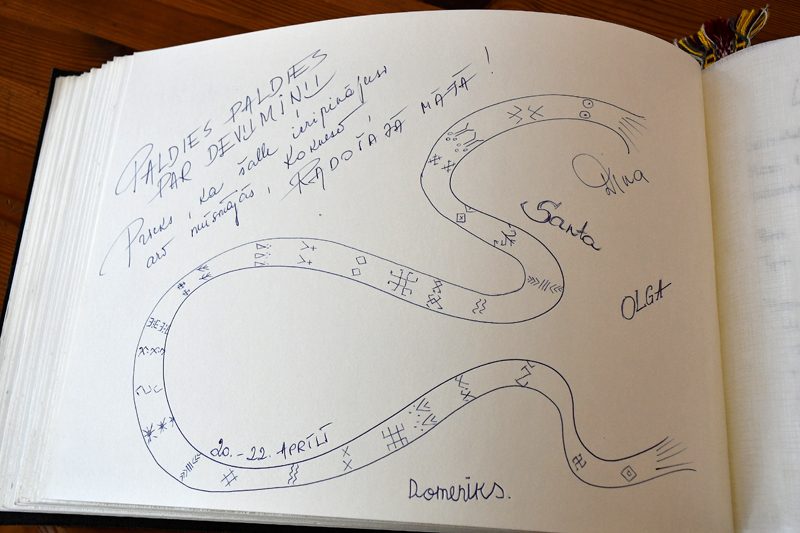 PALDIES PALDIES
PAR DEVUMIŅU
Prieks, ka šalle ieripinājusi
arī mūsmājās, Koknesē
RADOŠAJĀ MĀJĀ!
Dina
Santa
OLGA
20. - 22. APRĪLĪ
Domeniks.